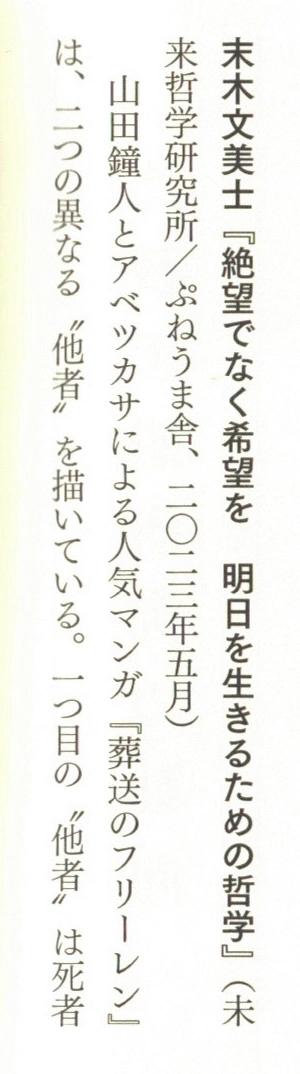 末木文美士『絶望でなく希望を　明日を生きるための哲学』（未
来哲学研究所／ぷねうま舎、二〇二三年五月）
　山田鐘人とアベツカサによる人気マンガ『葬送のフリーレン』
は、二つの異なる〝他者〟を描いている。一つ目の〝他者〟は死者